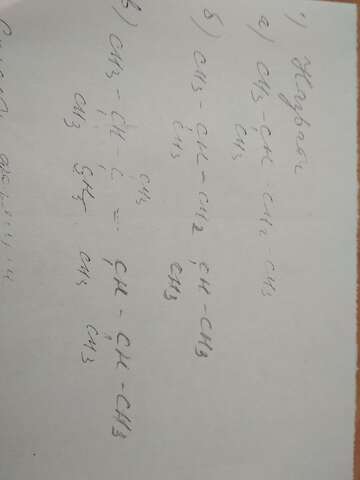 1)
а) CH3 - CH - CH2 - CH3
CH3
б) CH3 - CH - CH2 CH - CH3
CH3 CH3
CH3
в) CH3 - CH - C = CH - CH - CH3
CH3 CH3 CH3 CH3